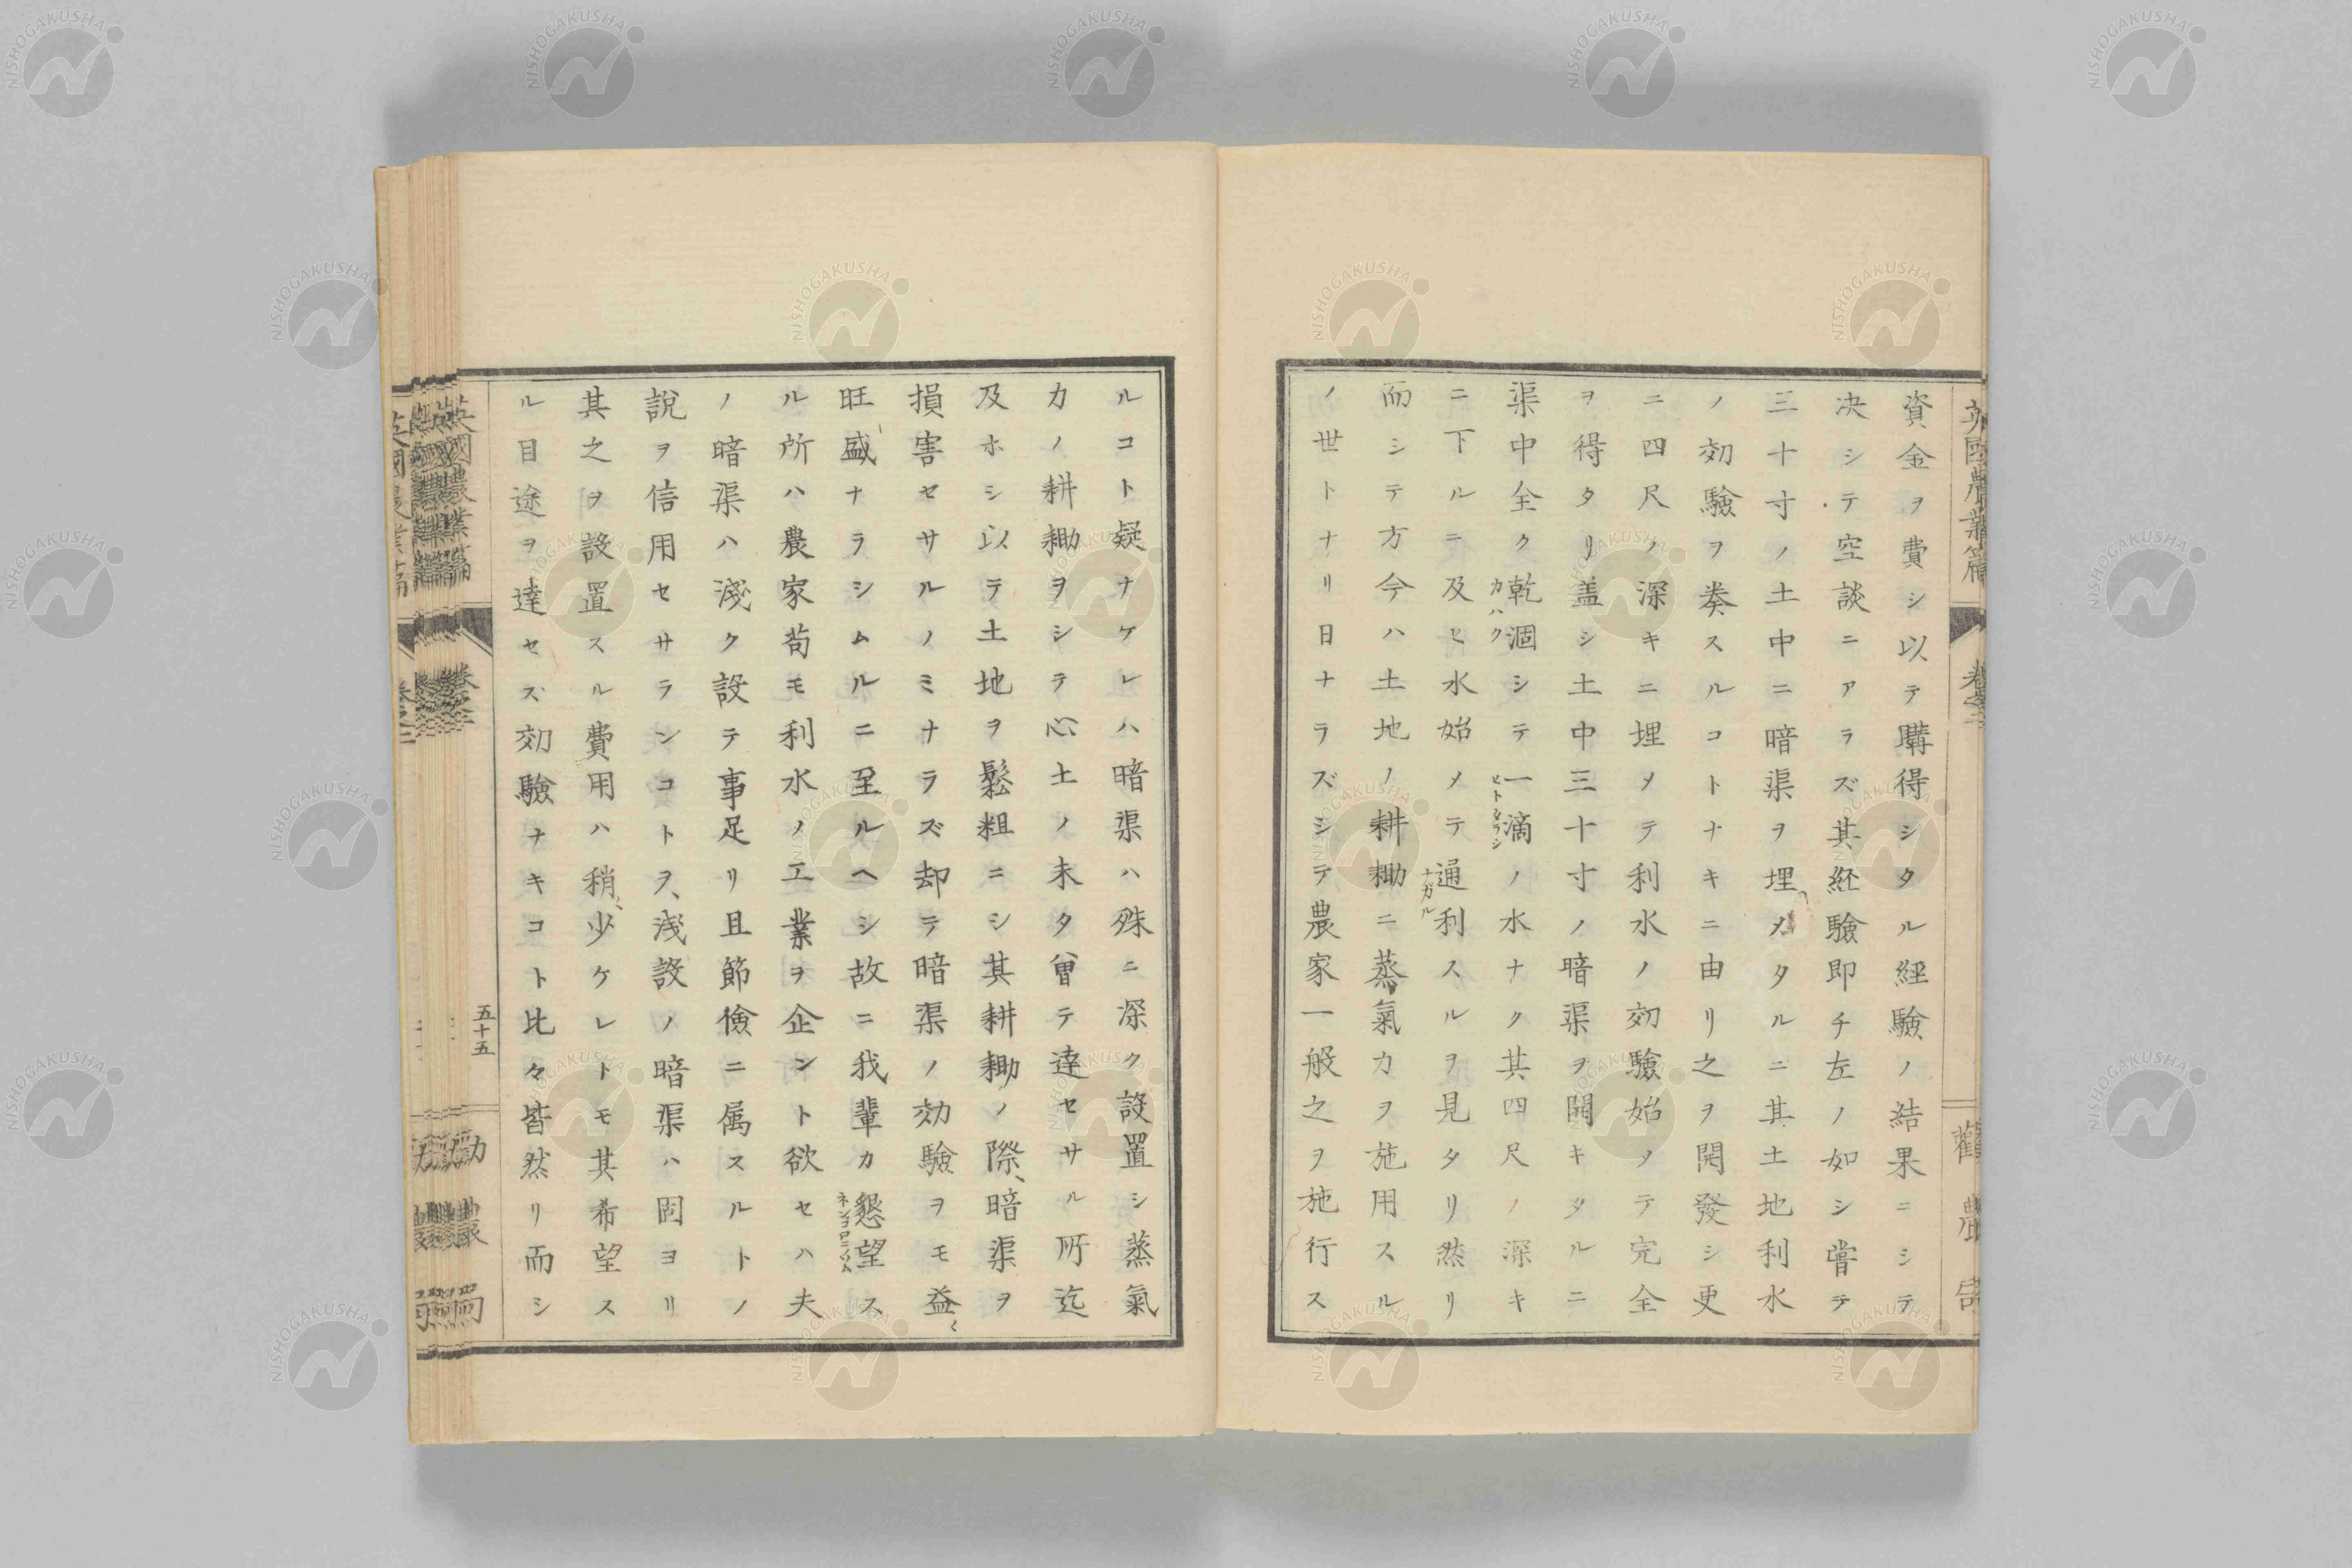 英國農業篇 卷之二 勸農局
資金ヲ費シ以テ購得シタル経驗ノ結果ニシテ
决シテ空談ニアラズ其経驗即チ左ノ如シ嘗テ
三十寸ノ土中ニ暗渠ヲ埋メタルニ其土地利水
ノ効驗ヲ奏スルコトナキニ由リ之ヲ開發シ更
ニ四尺ノ深キニ埋メテ利水ノ効驗始メテ完全
ヲ得タリ盖シ土中三十寸ノ暗渠ヲ開キタルニ
渠中全ク乾涸シテ一滴ノ水ナク其四尺ノ深キ
カハク
ヒトタラシ
ニ下ルニ及ヒ水始メテ通利スルヲ見タリ然リ
ナガル
而シテ方今ハ土地ノ耕耡ニ蒸氣カヲ施用スル
ノ世トナリ日ナラズシテ農家一般之ヲ施行ス
ルコト疑ナケレハ暗渠ハ殊ニ深ク設置シ蒸氣
カノ耕耡ヲシテ心土ノ未タ曽テ達セサル所迄
及ホシ以テ土地ヲ鬆粗ニシ其耕耡ノ際、暗渠ヲ
損害セサルノミナラズ却テ暗渠ノ効驗ヲモ益〻
旺盛ナラシムルニ至ルヘシ故ニ我輩カ懇望ス
ネンコロニノソム
ル所ハ農家苟モ利水ノ工業ヲ企ント欲セハ夫
ノ暗渠ハ淺ク設テ事足リ且節儉ニ属スルトノ
說ヲ信用セサランコトヲ、淺設ノ暗渠ハ固ヨリ
其之ヲ設置スル費用ハ稍〻少ケレトモ其希望ス
ル目途ヲ達セズ効驗ナキコト比々皆然リ而シ
英國農業篇 卷之二 五十五 勸農局